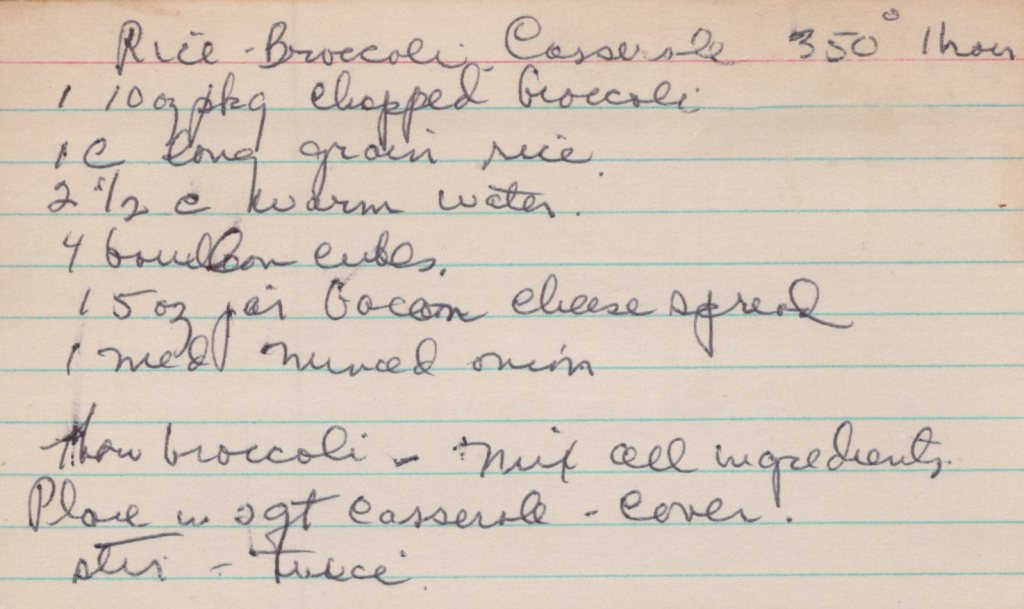 Rice - Broccoli Casserole 350° 1 hour
1 10 oz pkg chopped broccoli
1 C long grain rice.
2 1/2 c warm water.
4 bouillon cubes.
1 5 oz jar bacon cheese spread
1 med minced onion
thaw broccoli - mix all ingredients.
Place in 2qt casserole - cover.
stir - twice.